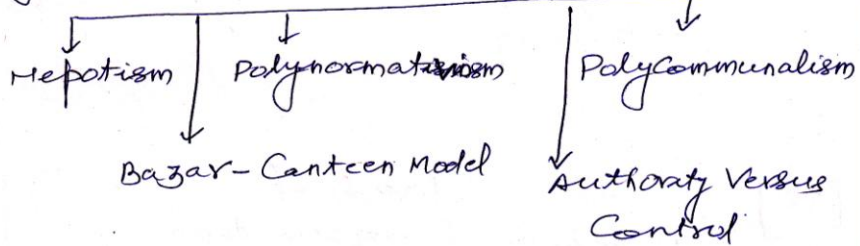 Nepotism Polynormativism PolyCommunalism
Bazar - Canteen Model Authoraty Versus
Control